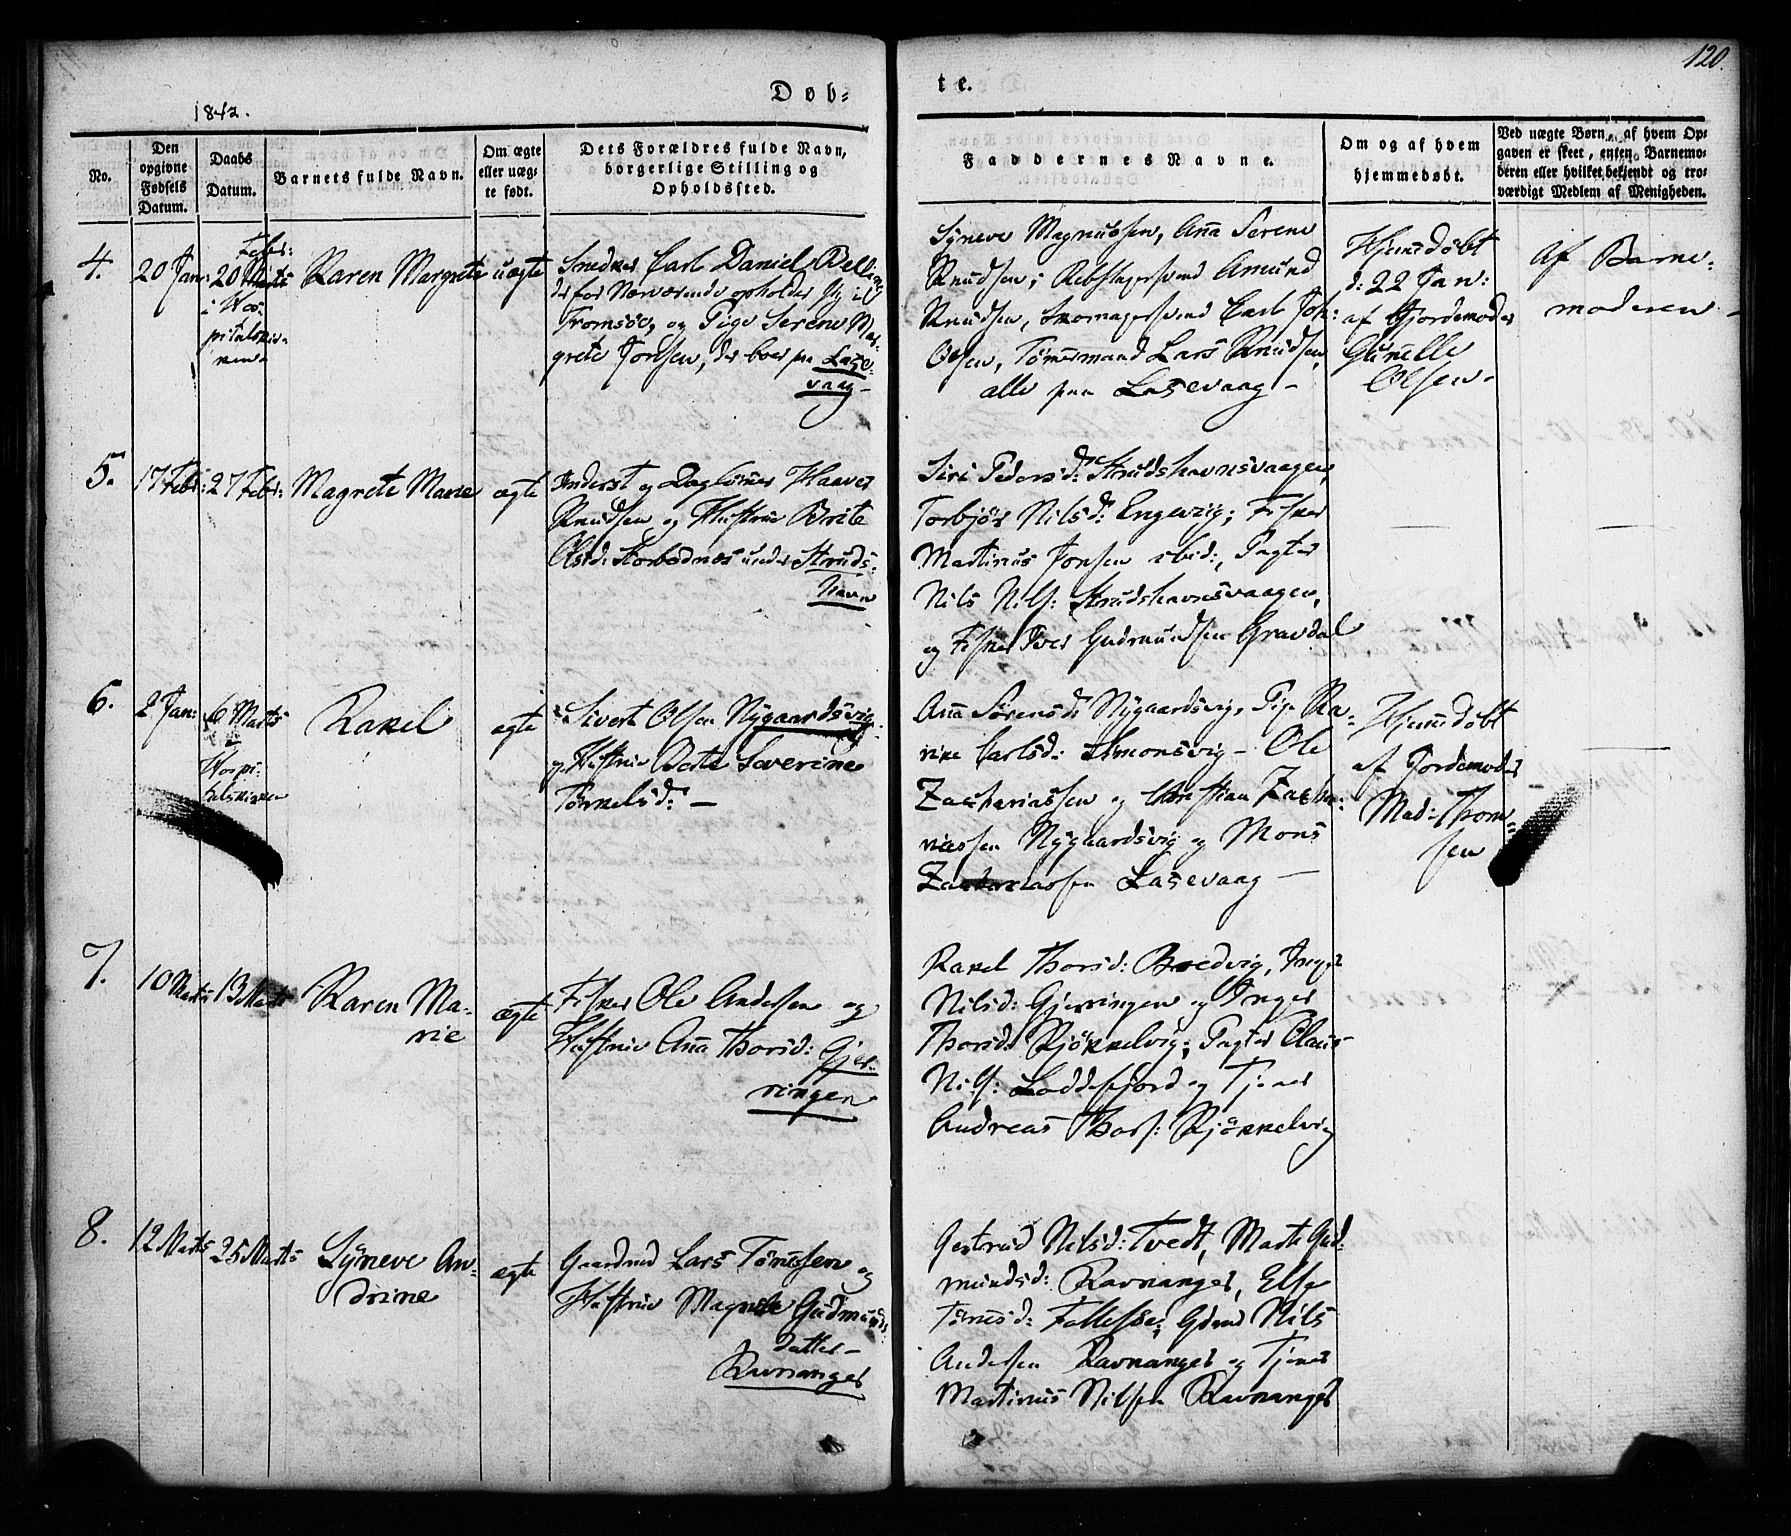 120.
Døb=
te.
1842.
No.
Den
opgivne
Fødsels
Datum.
Daabs
Datum.
Barnets fulde Navn.
Om ægte
eller uæg-
te født.
Dets Forældres fulde Navn,
borgerlige Stilling og
Opholdssted.
Faddernes Navne.
Om og af hvem
hjemmedøbt.
Ved uægte Børn, af hvem Op-
gaven er skeet, enten Barnemo-
deren eller hvilket bekjendt og tro-
værdigt Medlem af Menigheden.
4.
20 Jan:
20
i Hos-
pitalskir-
ken
Karen Margrete
uægte
Snedker Carl Daniel
der for Nærværende opholder sig i
Tromsøe, og Pige Serene Mar-
grete Jonsen, der boer paa Laxe-
vaag -
Syneve Magnussen, Anna Serene
Knudsen; Rebslagersvend Amund
Knudsen, Skomagersvend Carl Joh:
Olsen, Tømermand Lars Knudsen,
alle paa Laxevaag -
Hjemdøbt
d: 22 Jan:
af Gjordemoder
Gunelle
Olsen.
Af Barne-
moderen -
5.
17 Febr:
27 Febr:
Magrete Marie
ægte
Inderst og Dagløner Haaver
Knudsen og Hustrue Brite
Olsd: under Struds-
havn
Siri Pedersd: Strudshavnsvaagen,
Torbjør Nilsd: Engevig; Fisker
Martinus Jonsen ibid:, Pagter
Nils Nils: Strudshavnsvaagen,
og Fisker Iver Gudmundsen Gravdal
6.
2 Jan:
6 Marts
i
Hospi-
talskirken
Rakel
ægte
Sivert Olsen Nygaardsvig
og Hustrue Berte Severine
Torkelsd: -
Anna Sørensd: Nygaardsvig, Pige Ka-
rine Carlsd: Simonsvig - Ole
Zachariassen og Christian Zacha-
riassen Nygaardsvig og Mons
Zachariassen Laxevaag -
Hjemdøbt
af Jordemoder
Mad: Thom-
sen
7.
10 Marts
13 Marts
Karen Ma-
rie
ægte
Fisker Ole Andersen og
Hustrue Anna Thorsd: Gjer-
ringen
Rakel Thorsd: Bredvig, Inger
Nilsd: Gjerringen og Inger
Thorsd: Kjøkkelvig; Pagter Claus
Nils: Loddefjord og Tjener
Andreas Thors: Kjøkkelvig
8.
12 Marts
25 Marts
Syneve An-
drine
ægte
Gaardmd Lars Tømesen og
Hustrue Magnele Gudmunds
datter -
Ravnanger
Gertrud Nilsd: Tvedt, Marte Gud-
mundsd: Ravnanger, Else
Tømesd: Follesøe; Gdmd Nils
Andersen Ravnanger og Tjener
Martinus Nilsen Ravnanger